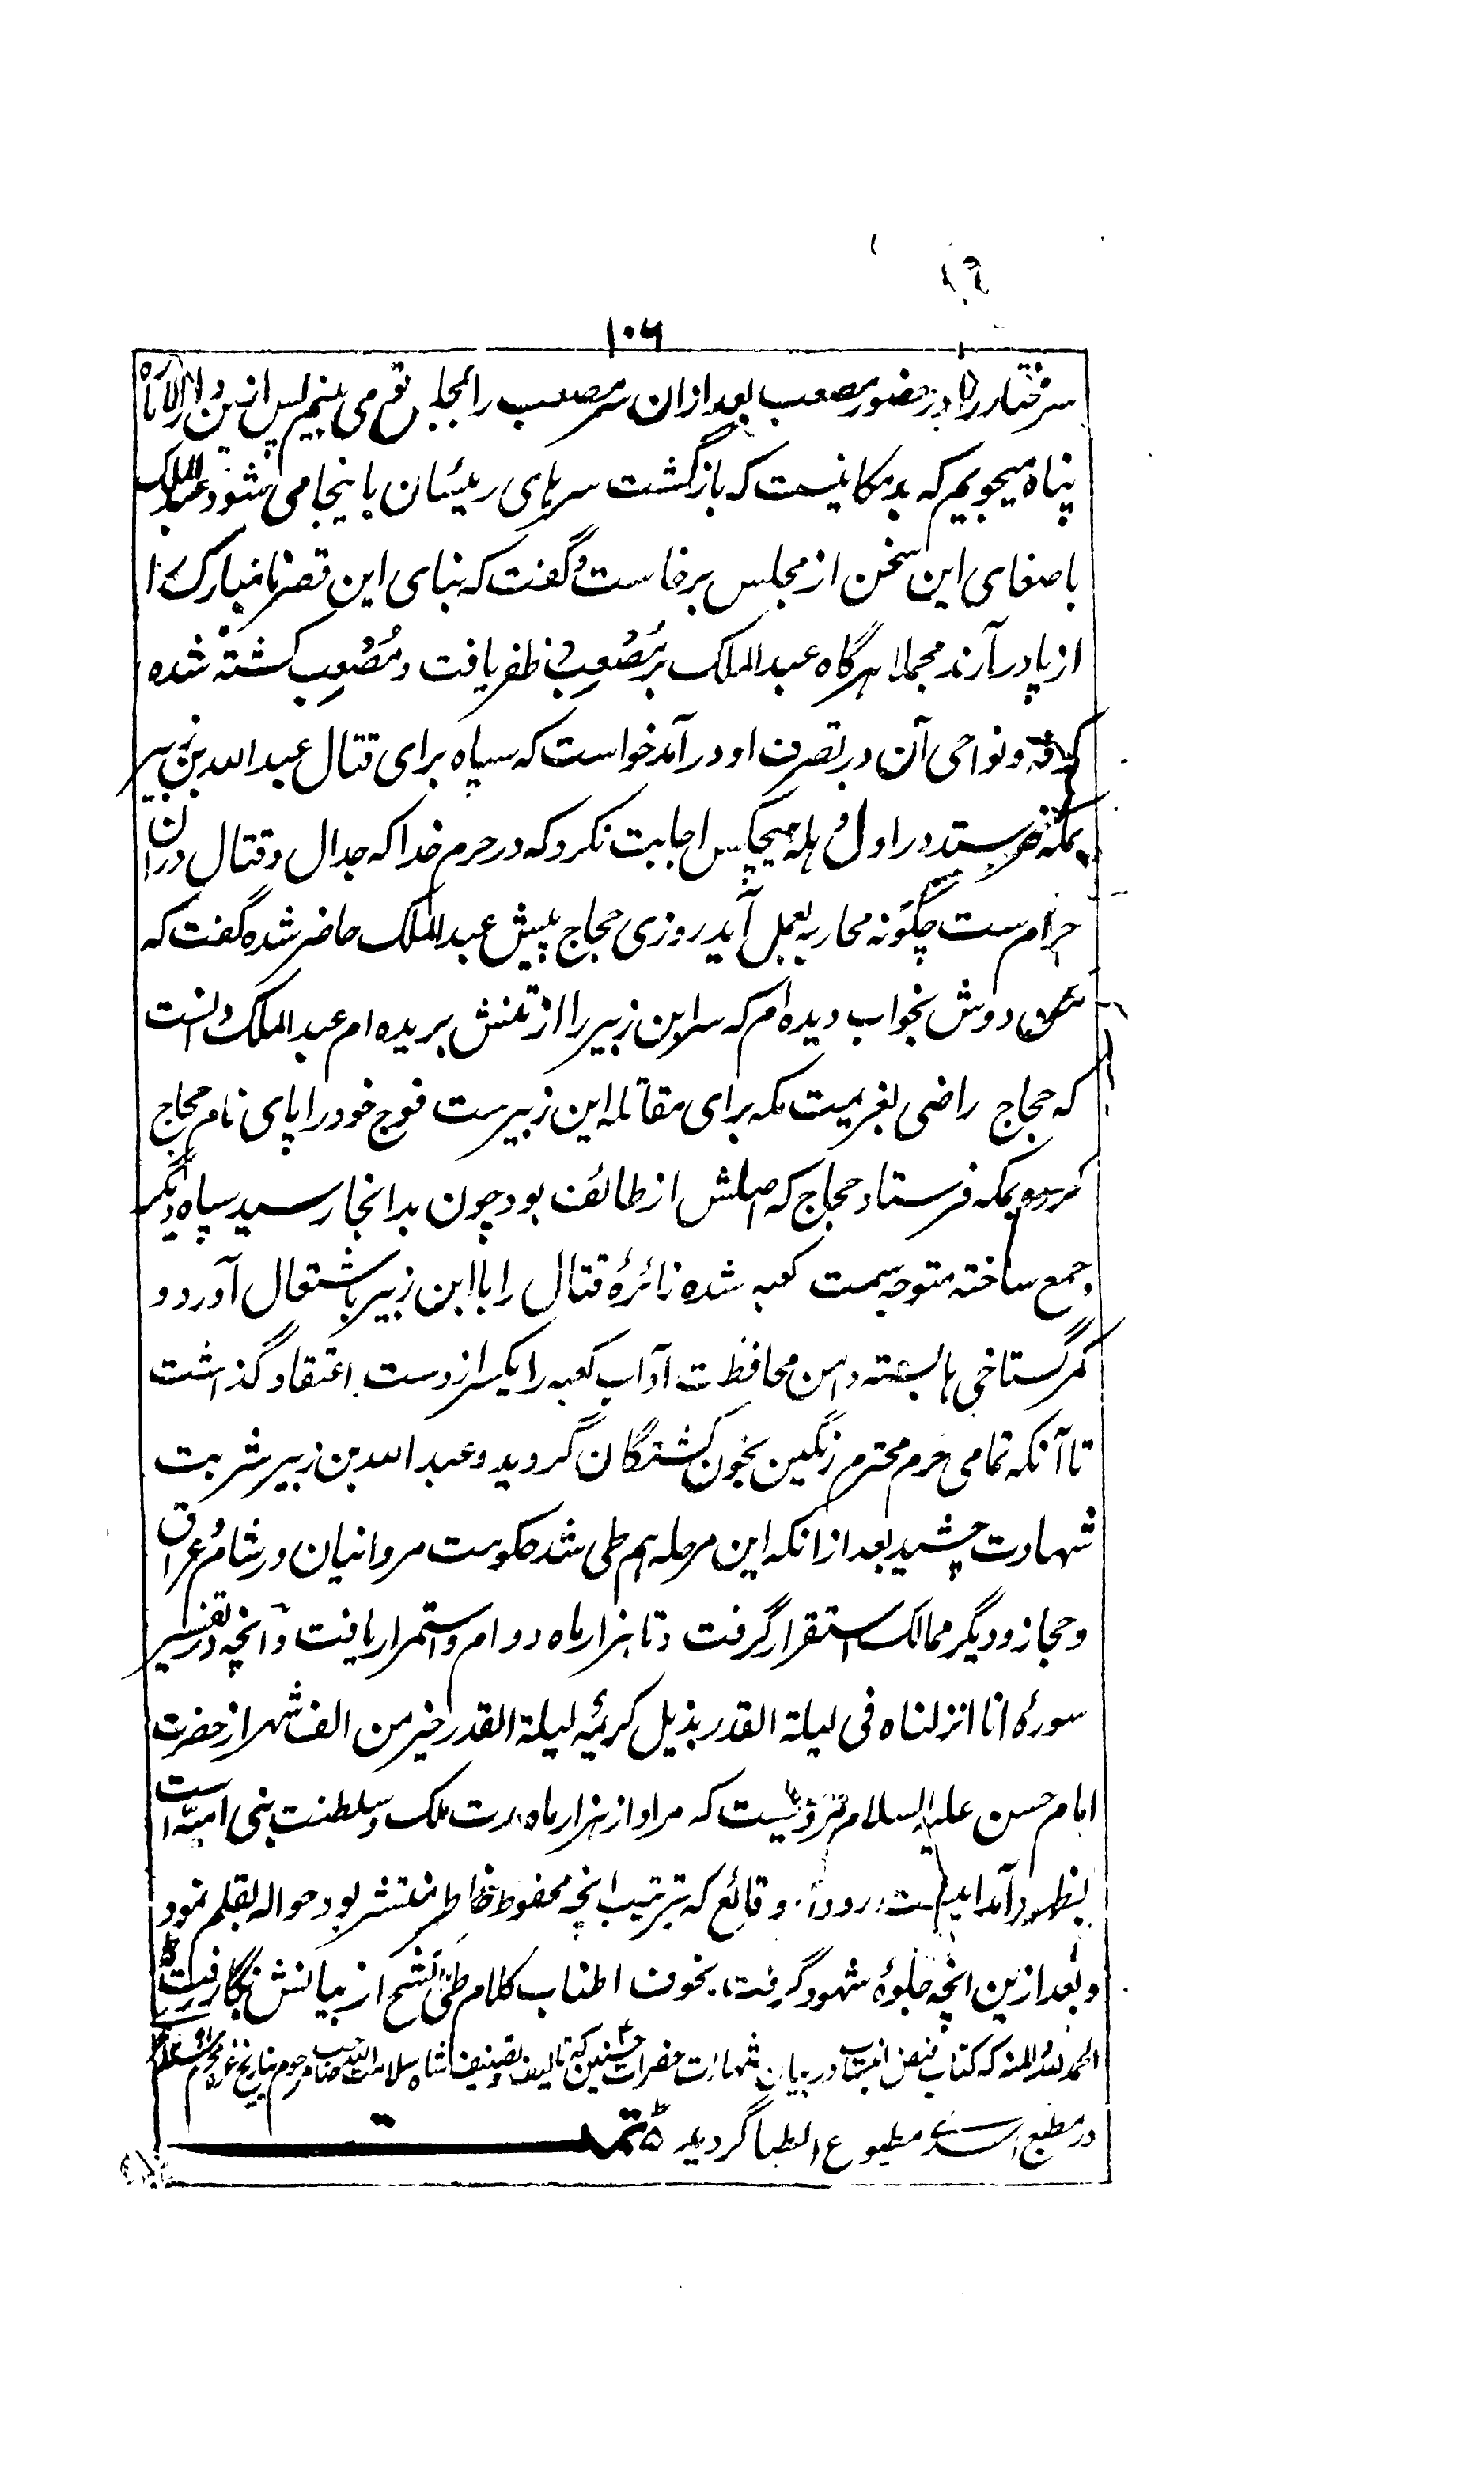 ۱۰۶
سر مختار را در حضور مصعب بعد ازان سر مصعب را بمجلس تو می بینم پس ازین دار الاماره
پناه میجویم که بد مکانیست که بازگشت سرهای رئیسان باینجا می شود عبدالملک
باصغای این سخن از مجلس برخاست و گفت که بنای این قصر نامبارک را
از پا در آرند مجملا هرگاه عبدالملک بر مُصْعِب ظفر یافت و مُصْعِب کشته شده
کوفه و نواحی آن در تصرف او در آمد خواست که سپاه برای قتال عبدالله بن زبیر
بمکه فرستد در اول وهله هیچکس اجابت نکرد که در حرم خدا که جدال و قتال دران
حرام ست چگونه محاربه بعمل آید روزی حجاج پیش عبدالملک حاضر شده گفت که
من دوش بخواب دیده ام که سر ابن زبیر را از تنش بریده ام عبدالملک دانست
که حجاج راضی بعزیمت مکه برای مقاتله ابن زبیرست فوج خود را پای نام حجاج
کرده بمکه فرستاد حجاج که اصلش از طائف بود چون بدانجا رسید سپاه دیگر
جمع ساخته متوجه سمت کعبه شده نائرهٔ قتال را با ابن زبیر باشتعال آورد و
کمر گستاخی ها بسته دامن محافظت آداب کعبه را یکسر از دست اعتقاد گذاشت
تا آنکه تمامی حرم محترم رنگین بخون کشتگان گردید و عبدالله بن زبیر شربت
شهادت چشید بعد ازانکه این مرحله هم طی شد حکومت مروانیان در شام و عراق
و حجاز و دیگر ممالک استقرار گرفت و تا هزار ماه دوام و استمرار یافت و آنچه در تفسیر
سورهٔ انا انزلناه فی لیلة القدر بذیل کریمهٔ لیلة القدر خیر من الف شهر از حضرت
امام حسن علیه السلام مرویست که مراد از هزار ماه مدت ملک و سلطنت بنی امیه است
بظهور آمد اینست وقائع که بترتیب انچه محفوظ خاطر منتشر بود حواله بقلم نمود
و بعد ازین انچه جلوهٔ شهود گرفت بخوف اطناب کلام طی کشح از بیانش بکار رفت
الحمد لله والمنه که کتاب فیض انتساب در بیان شهادت حضرات حسنین که تالیف و تصنیف شاه سلامت الله صاحب مرحوم بتاریخ غره محرم
در مطبع مطبوع الطبا گردید تمت